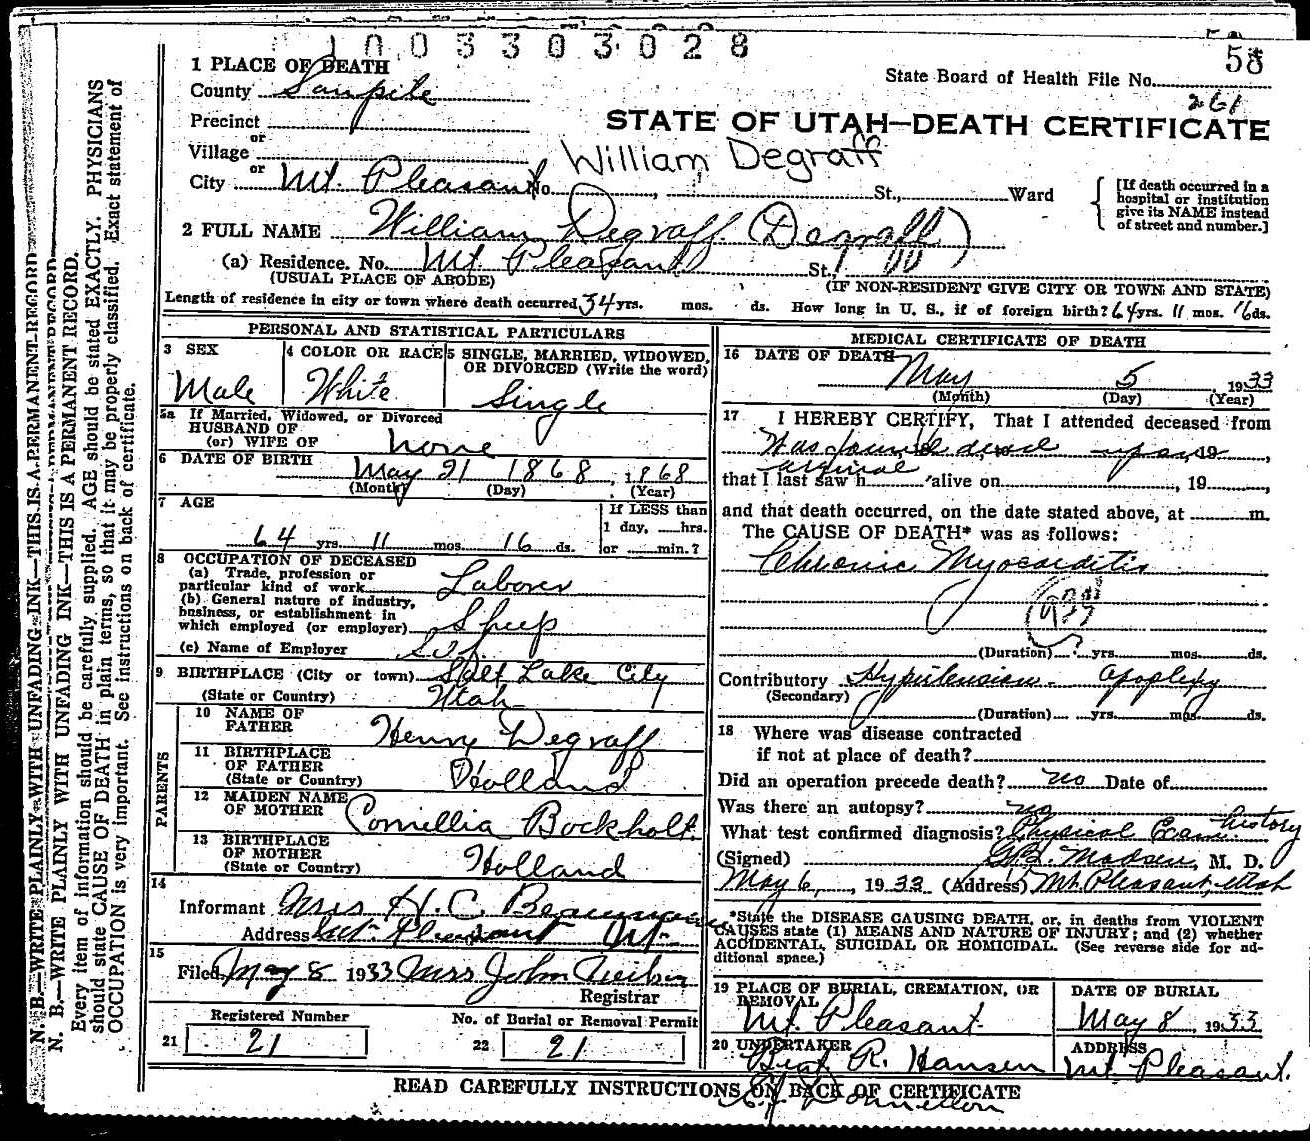 1003303028
58
1 PLACE OF DEATH
State Board of Health File No.
County Sanpete
261
Precinct
STATE OF UTAH—DEATH CERTIFICATE
or
Village
William Degraff
or
City Mt. Pleasant No. St., Ward
[If death occurred in a
hospital or institution
give its NAME instead
of street and number.]
2 FULL NAME William Degraff (Degraff)
(a) Residence. No. Mt Pleasant St.
(USUAL PLACE OF ABODE)
(IF NON-RESIDENT GIVE CITY OR TOWN AND STATE)
Length of residence in city or town where death occurred 34 yrs. mos. ds. How long in U. S., if of foreign birth? 64 yrs. 11 mos. 16 ds.
PERSONAL AND STATISTICAL PARTICULARS
3 SEX
Male
4 COLOR OR RACE
White
5 SINGLE, MARRIED, WIDOWED,
OR DIVORCED (Write the word)
Single
5a If Married, Widowed, or Divorced
HUSBAND OF
(or) WIFE OF none
6 DATE OF BIRTH
May 21 1868, 1868
(Month) (Day) (Year)
7 AGE
64 yrs. 11 mos. 16 ds.
If LESS than
1 day, hrs.
or min.?
8 OCCUPATION OF DECEASED
(a) Trade, profession or
particular kind of work Laborer
(b) General nature of industry,
business, or establishment in
which employed (or employer) Sheep
(c) Name of Employer
9 BIRTHPLACE (City or town) Salt Lake City
(State or Country) Utah
PARENTS
10 NAME OF
FATHER Henry Degraff
11 BIRTHPLACE
OF FATHER
(State or Country) Holland
12 MAIDEN NAME
OF MOTHER Cornellia Bockholt
13 BIRTHPLACE
OF MOTHER
(State or Country) Holland
14
Informant Mrs H. C. Beaumann
Address Mt. Pleasant Ut.
15
Filed May 8 1933 Mrs John
Registrar
Registered Number
21 21
No. of Burial or Removal Permit
22 21
MEDICAL CERTIFICATE OF DEATH
16 DATE OF DEATH
May 5, 1933
(Month) (Day) (Year)
17 I HEREBY CERTIFY, That I attended deceased from
Was found dead upon, 19
arrival
that I last saw h alive on , 19 ,
and that death occurred, on the date stated above, at m.
The CAUSE OF DEATH* was as follows:
Chronic Myocarditis
(Duration) ? yrs. mos. ds.
Contributory Hypertension - apoplexy
(Secondary)
(Duration) yrs. mos. ds.
18 Where was disease contracted
if not at place of death?
Did an operation precede death? no Date of
Was there an autopsy? no
What test confirmed diagnosis? Physical Exam. history
(Signed) Madsen, M. D.
May 6, 1933 (Address) Mt. Pleasant, Utah
*State the DISEASE CAUSING DEATH, or, in deaths from VIOLENT
CAUSES state (1) MEANS AND NATURE OF INJURY; and (2) whether
ACCIDENTAL, SUICIDAL OR HOMICIDAL. (See reverse side for ad-
ditional space.)
19 PLACE OF BURIAL, CREMATION, OR
REMOVAL
Mt. Pleasant
DATE OF BURIAL
May 8, 1933
20 UNDERTAKER
R. Hansen
ADDRESS
Mt Pleasant.
READ CAREFULLY INSTRUCTIONS ON BACK OF CERTIFICATE
N. B.—WRITE PLAINLY WITH UNFADING INK—THIS IS A PERMANENT RECORD
N. B.—WRITE PLAINLY WITH UNFADING INK—THIS IS A PERMANENT RECORD.
Every item of information should be carefully supplied. AGE should be stated EXACTLY. PHYSICIANS
should state CAUSE OF DEATH in plain terms, so that it may be properly classified. Exact statement of
OCCUPATION is very important. See instructions on back of certificate.